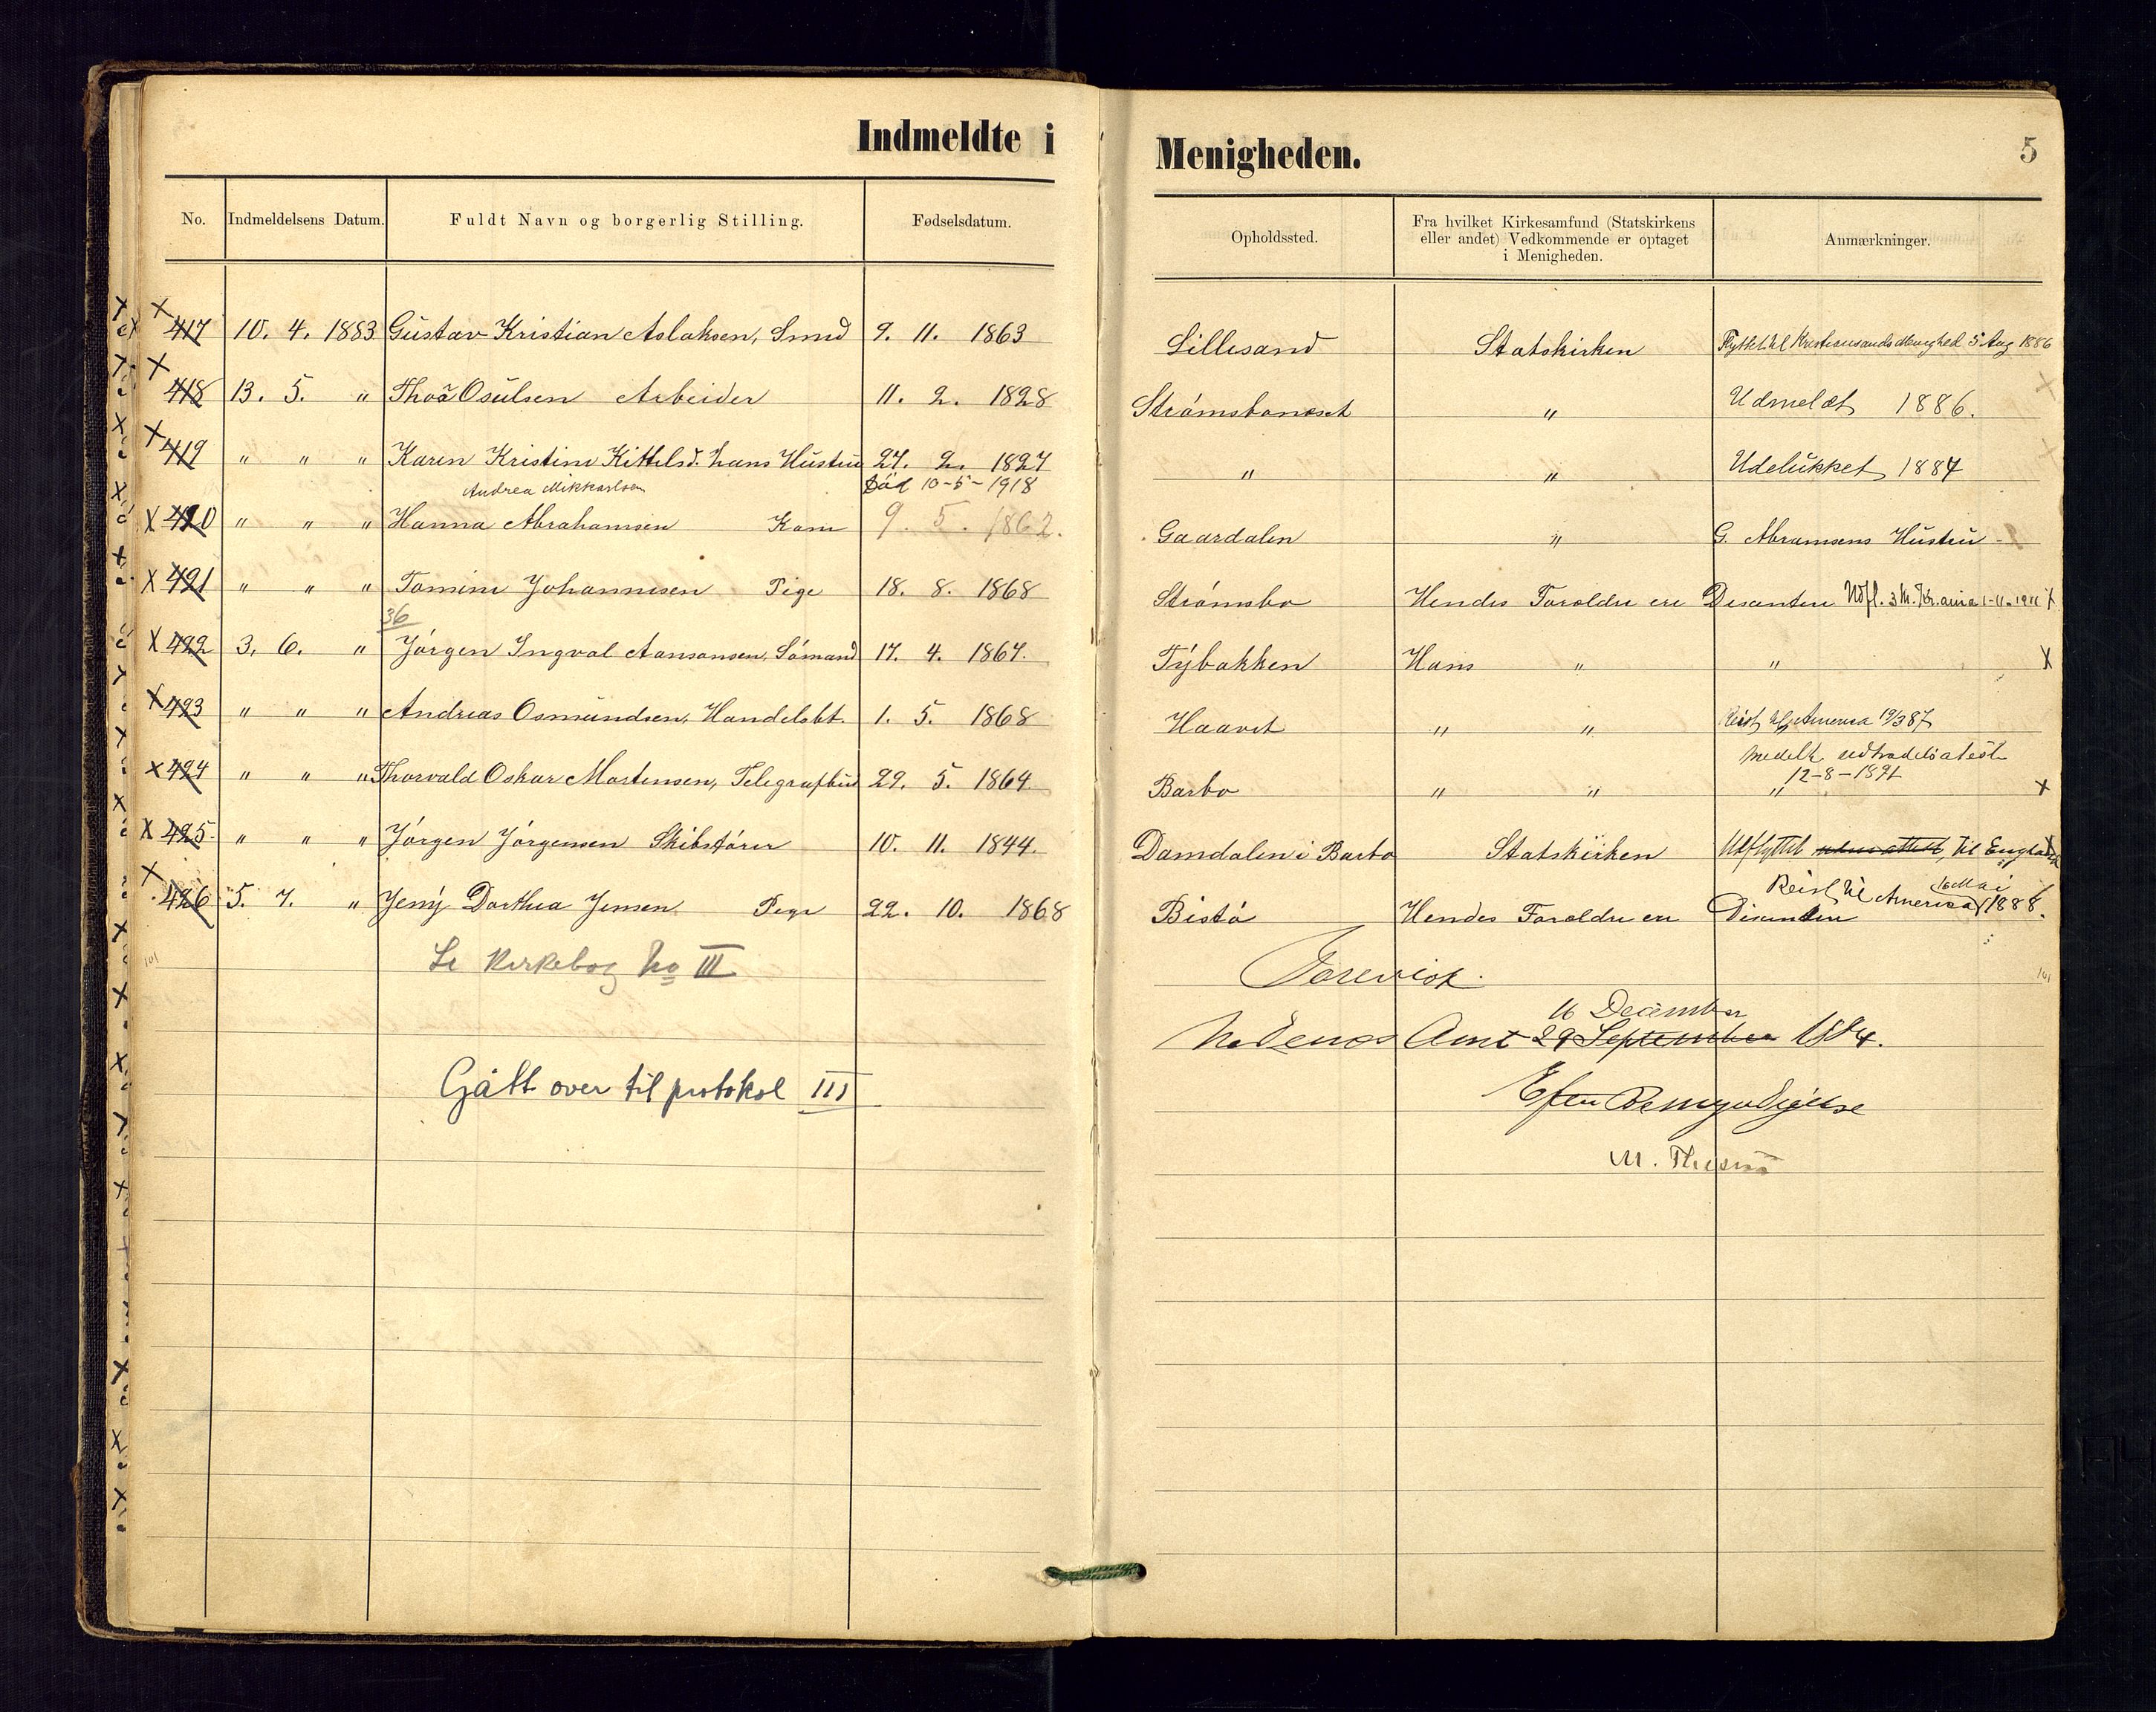 Indmeldte i Menigheden.
5
No. Indmeldelsens Datum. Fuldt Navn og borgerlig Stilling. Fødselsdatum. Opholdssted. Fra hvilket Kirkesamfund (Statskirkens eller andet) Vedkommende er optaget i Menigheden. Anmærkninger.
417 10. 4. 1883 Gustav Kristian Aslaksen, Smed 9. 11. 1863 Lillesand Statskirken Flyttet til Kristiansands Menighed 5 Aug 1886
418 13. 5. " Osulsen Arbeider 11. 2. 1828 Strømsboneset " Udmeldt 1886.
419 " " " Karen Kristine Kittelsd. hans Hustru 27. 2. 1827 " " Udelukket 1884
Andrea Mikkaelsen Død 10-5-1918
420 " " " Hanna Abrahamsen Kone 9. 5. 1862. Gaardalen " G. Abramsens Hustru
421 " " " Tomine Johannesen Pige 18. 8. 1868 Strømsbo Hendes Forældre ere Disenter Udfl. 3 M. Kr.ania 1-11-1911 X
36
422 3. 6. " Jørgen Ingval Aanonsen, Sømand 17. 4. 1867. Tybakken Hans " " X
423 " " " Andreas Osmundsen, Handelsbt. 1. 5. 1868 Haavet " " Reist til Amerika 19/3 87
424 " " " Thorvald Oskar Mortensen, Telegrafbud 29. 5. 1864. Barbo " " " X
Medelt udtrædelsatest
12-8-1891
425 " " " Jørgen Jørgensen Skibsfører 10. 11. 1844. Damdalen i Barbo Statskirken Udflyttet til England
426 5. 7. " Jeny Dorthea Jensen Pige 22. 10. 1868 Bistø Hendes Forældre ere Disenter
Reist til Amerika 16 Mai 1888.
Se Kirkebog No III
Gått over til protokol III
Forevist.
16 December
Nedenes Amt 29 September 1884.
Efter Bemyndigelse